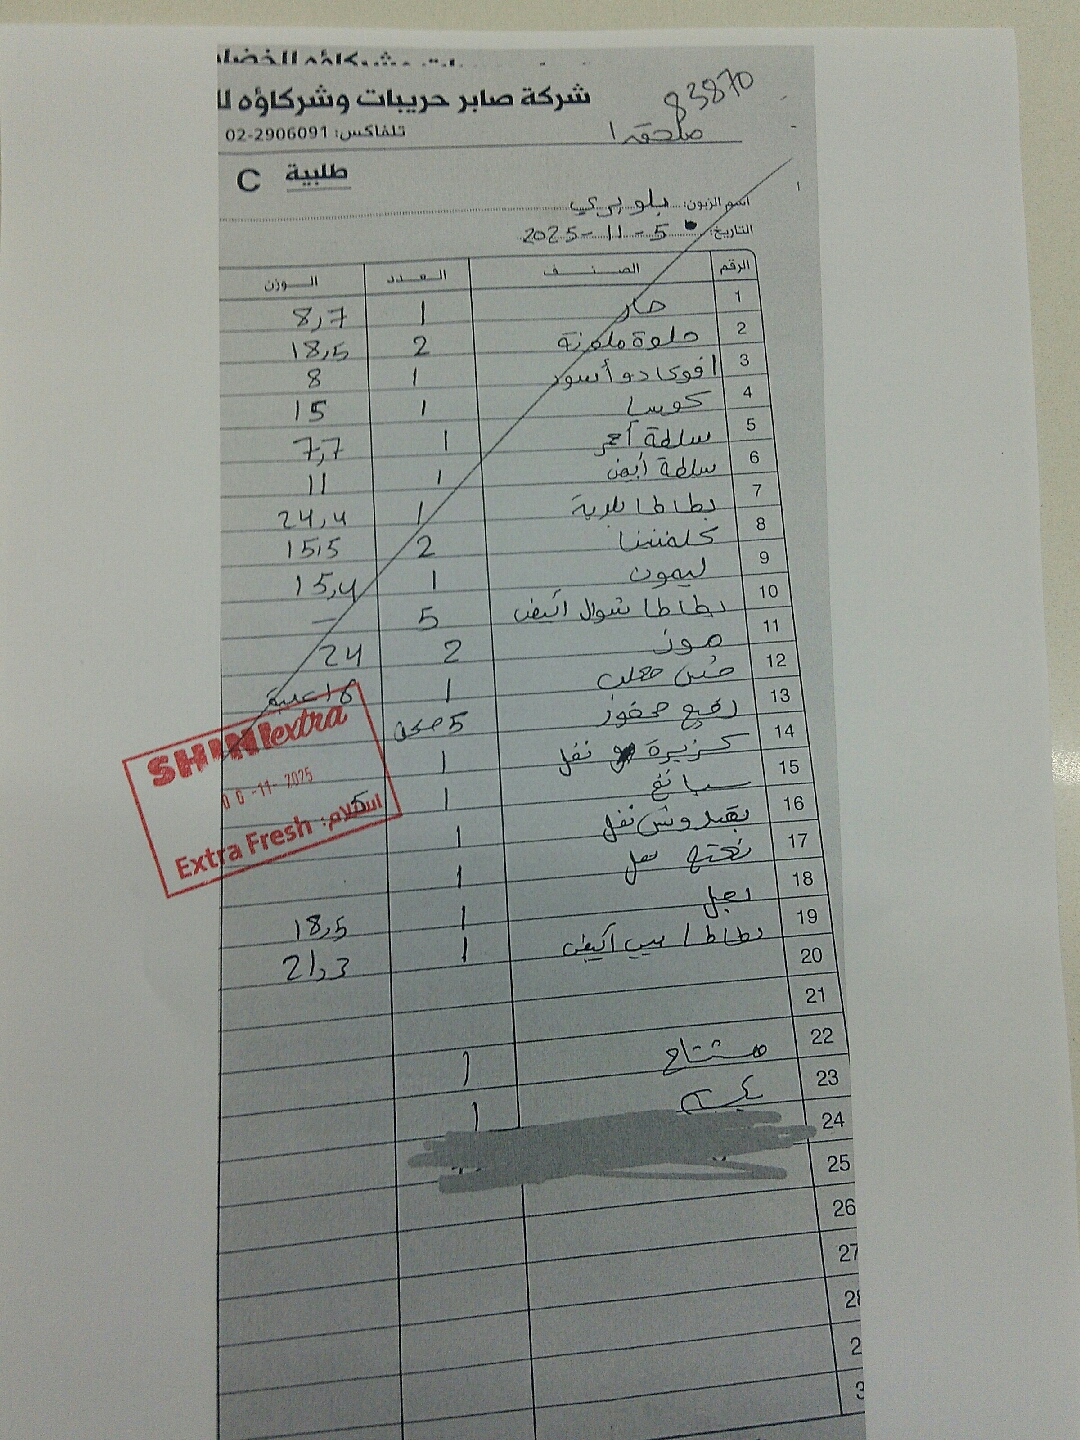 شركة صابر حريبات وشركاؤه
83870
تلفاكس: 02-2906091
ملحقة 1
طلبية C
اسم الزبون: بلو بري
التاريخ: 5-11-2025
الرقم الصنف العدد الوزن
1 حار 1 8,7
2 حلوة ملونة 2 18,5
3 افوكادو أسود 1 8
4 كوسا 1 15
5 سلطة أحمر 1 7,7
6 سلطة أبيض 1 11
7 بطاطا بلدية 1 24,4
8 كلمنتينا 2 15,5
9 ليمون 1 15,4
10 بطاطا شوال أبيض 5 –
11 موز 2 24
12 1
13 5
14 كزبرة نفل 1
15 سبانخ 1 5
16 بقدونس نفل 1
17 نفل 1
18 1 18,5
19 بطاطا بيبي أبيض 1 21,3
20
21
22 1
23 1
24
25
26
27
SHINI extra
06-11-2025
استلام: Extra Fresh